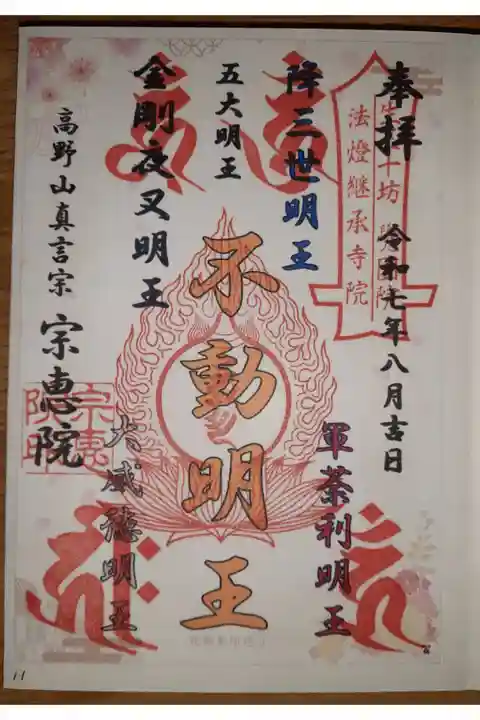 奉拝
令和七年八月吉日
法燈継承寺院
降三世明王
軍荼利明王
五大明王
不動明王
金剛夜叉明王
大威徳明王
高野山真言宗
宗恵院
宗恵
院印
11